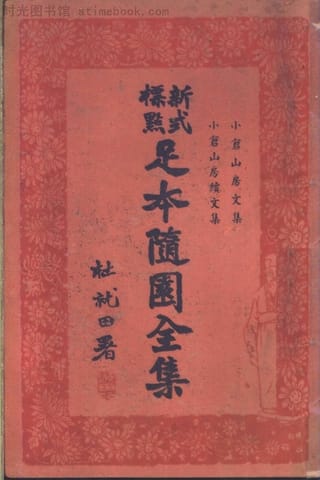 时光图书馆 atimebook.com
小倉山房文集
小倉山房續文集
新式
標點
足本隨園全集
杜就田署